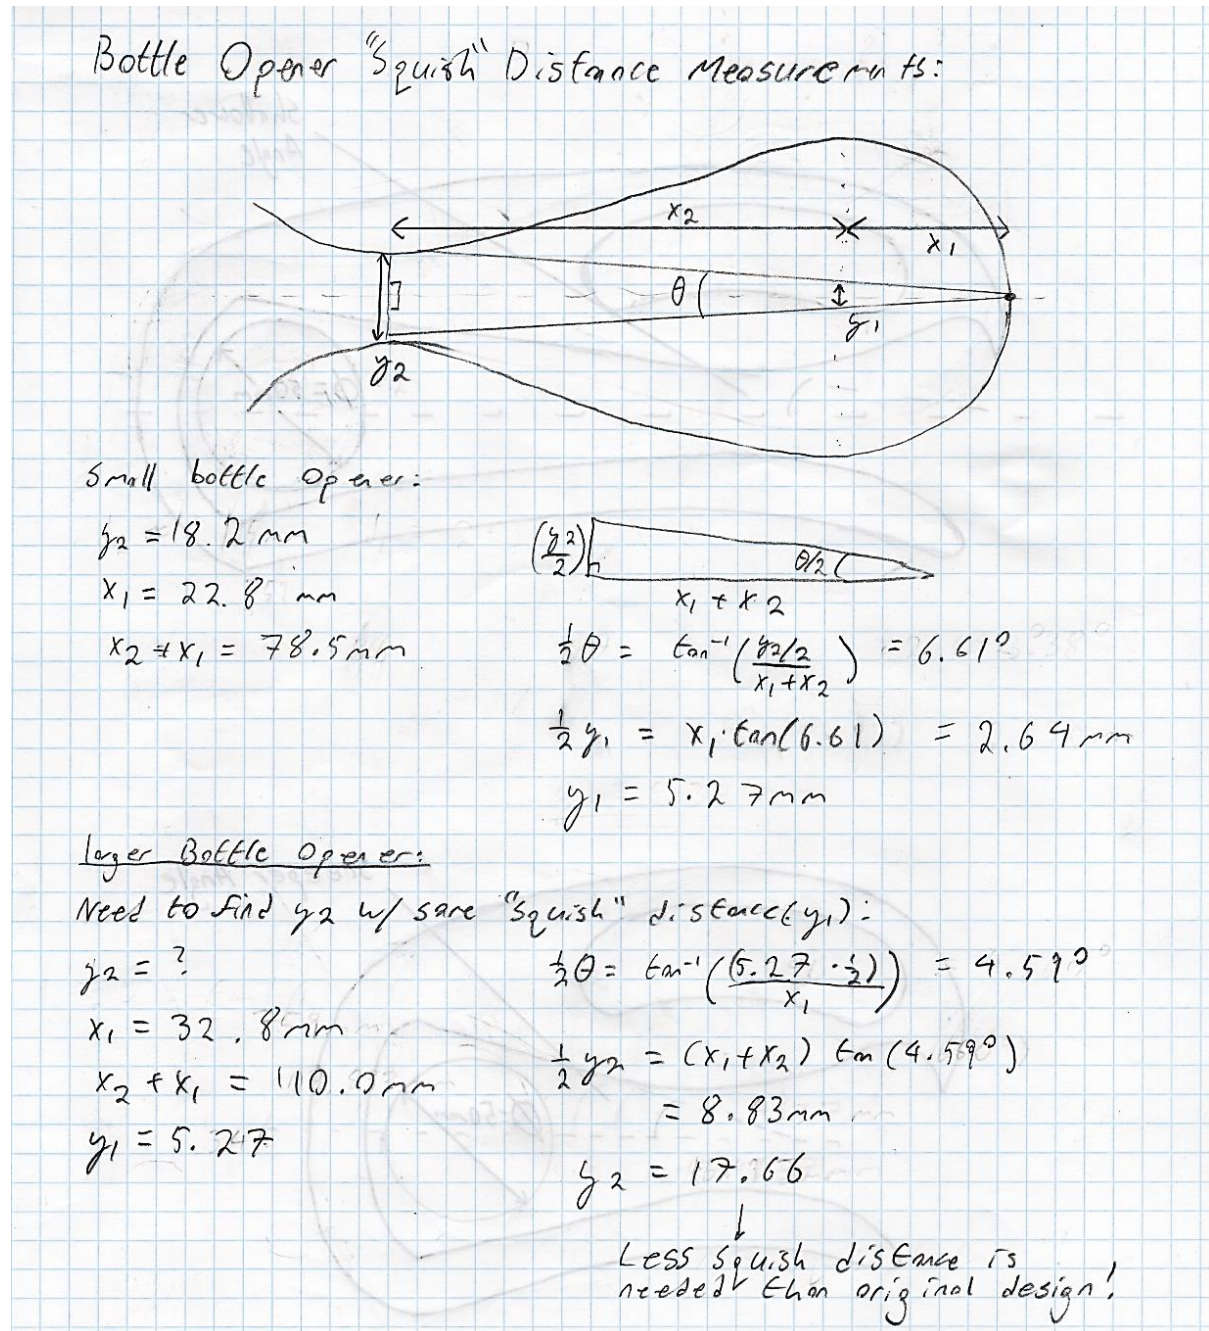 Bottle Opener "Squish" Distance Measurements:
x2
x1
θ
y1
y2
Small bottle Opener:
y2 = 18.2 mm
x1 = 22.8 mm
x2 + x1 = 78.5mm
(y2/2)
θ/2
x1 + x2
1/2 θ = tan⁻¹ ( (y2/2) / (x1+x2) ) = 6.61°
1/2 y1 = x1·tan(6.61) = 2.64 mm
y1 = 5.27mm
larger Bottle Opener:
Need to find y2 w/ same "squish" distance(y1):
y2 = ?
x1 = 32.8mm
x2 + x1 = 110.0mm
y1 = 5.27
1/2 θ = tan⁻¹ ( (5.27 · 1/2) / x1 ) = 4.59°
1/2 y2 = (x1+x2) tan (4.59°)
= 8.83mm
y2 = 17.66
↓
Less squish distance is
needed than original design!